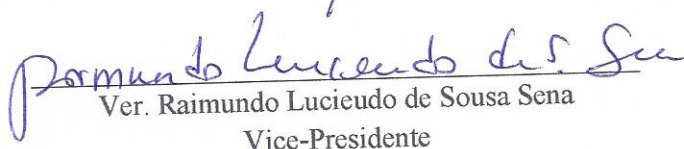 Raimundo Lucieudo de S. Sena
Ver. Raimundo Lucieudo de Sousa Sena
Vice-Presidente